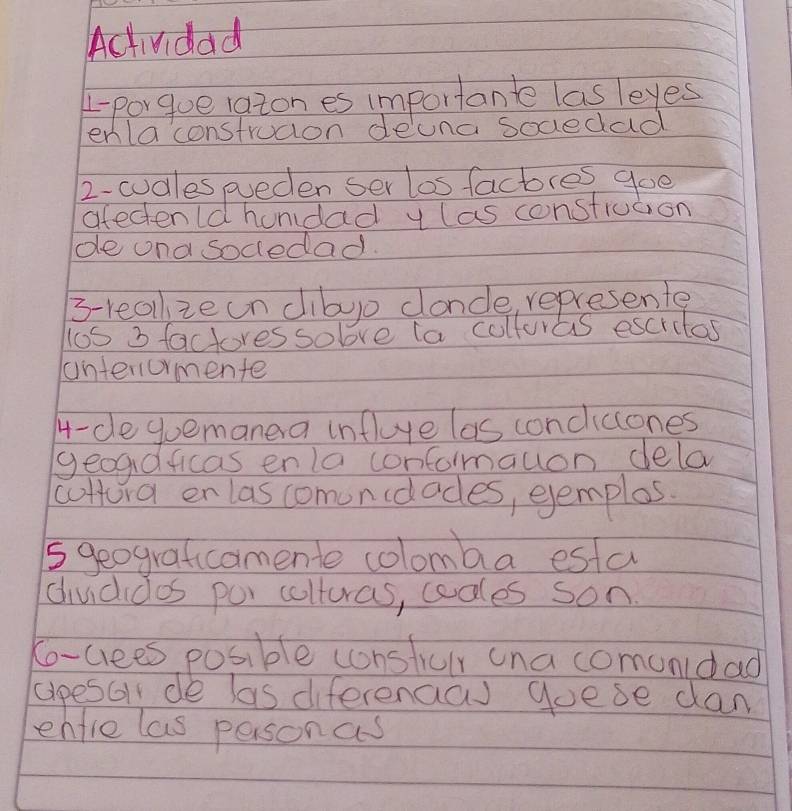 Actividad
1-porque razon es importante las leyes
en la construccion deuna sociedad
2-cuales pueden ser los factores que
afecten la humidad y las construcion
de una sociedad.
3-realize un dibujo donde, represente
los 3 factores sobre la culturas escritas
anteriormente
4-de quemanera influye las condiciones
geograficas en la conformacion dela
cultura en las comunidades, ejemplos.
5 geograficamente colombia esta
divididos por culturas, cuales son.
6-crees posible construir una comunidad
apesar de las diferencias que se dan
entre las personas